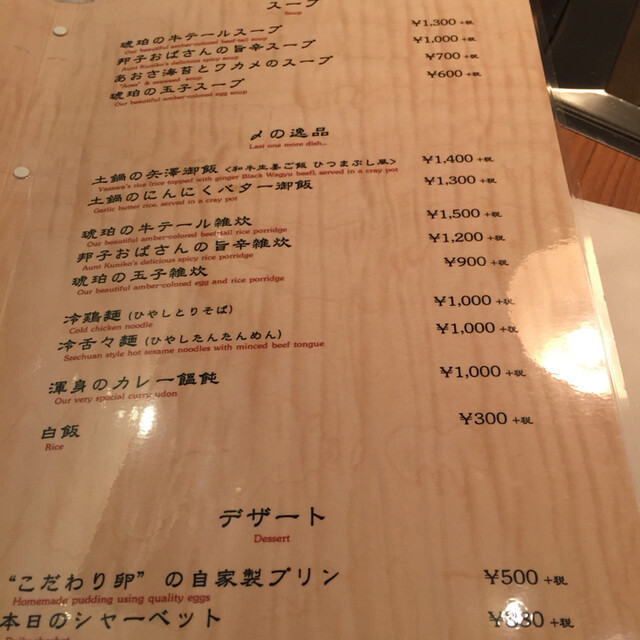 スープ
Soup
琥珀の牛テールスープ ¥1,300 +税
Our beautiful amber-colored beef-tail soup
邦子おばさんの旨辛スープ ¥1,000 +税
Aunt Kuniko's delicious spicy soup
あおさ海苔とワカメのスープ ¥700 +税
"Aosa" & seaweed soup
琥珀の玉子スープ ¥600 +税
Our beautiful amber-colored egg soup
〆の逸品
Last one more dish...
土鍋の矢澤御飯 <和牛生姜ご飯 ひつまぶし風> ¥1,400 +税
Yazawa's rice (rice topped with ginger Black Wagyu beef), served in a cray pot
土鍋のにんにくバター御飯 ¥1,300 +税
Garlic butter rice, served in a cray pot
琥珀の牛テール雑炊 ¥1,500 +税
Our beautiful amber-colored beef-tail rice porridge
邦子おばさんの旨辛雑炊 ¥1,200 +税
Aunt Kuniko's delicious spicy rice porridge
琥珀の玉子雑炊 ¥900 +税
Our beautiful amber-colored egg and rice porridge
冷鶏麺 (ひやしとりそば) ¥1,000 +税
Cold chicken noodle
冷舌々麺 (ひやしたんたんめん) ¥1,000 +税
Szechuan style hot sesame noodles with minced beef tongue
渾身のカレー饂飩 ¥1,000 +税
Our very special curry udon
白飯 ¥300 +税
Rice
デザート
Dessert
"こだわり卵" の自家製プリン ¥500 +税
Homemade pudding using quality eggs
本日のシャーベット +税